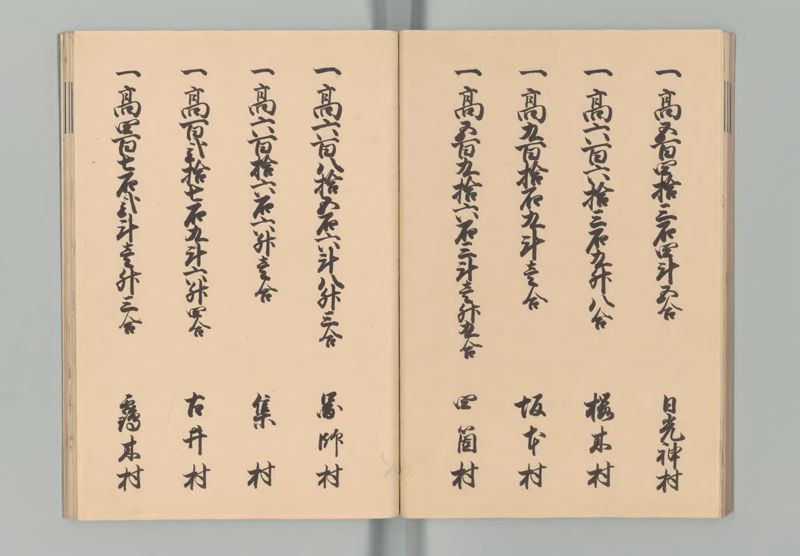 一高五百四拾三石四斗五合 日光神村
一高六百六拾三石九升八合 桜木村
一高九百拾石九斗壱合 坂本村
一高五百九拾六石三斗壱升九合 四箇村
一高六百八拾五石六斗八升三合 図師村
一高六百拾六石六升壱合 集村
一高百弐拾七石九斗六升四合 古井村
一高四百七石弐斗壱升三合 木村